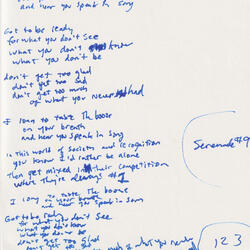 and hear you speak in song
Got to be ready
for what you don't see
what you don't
what you don't be
don't get too glad
don't get too sad
don't get too much
of what you never had
I long to taste the booze
on your breath
and hear you speak in song
in this world of Society and recognition
you know I'd rather be alone
then get mixed in their competition
where they're always #1
I long to taste the booze
on your breath
and hear you speak in song
Got to be ready
for what you don't see
what you don't know
what you don't be
don't get too glad
don't get too sad
don't get too much of what you never
Serenade #9
123